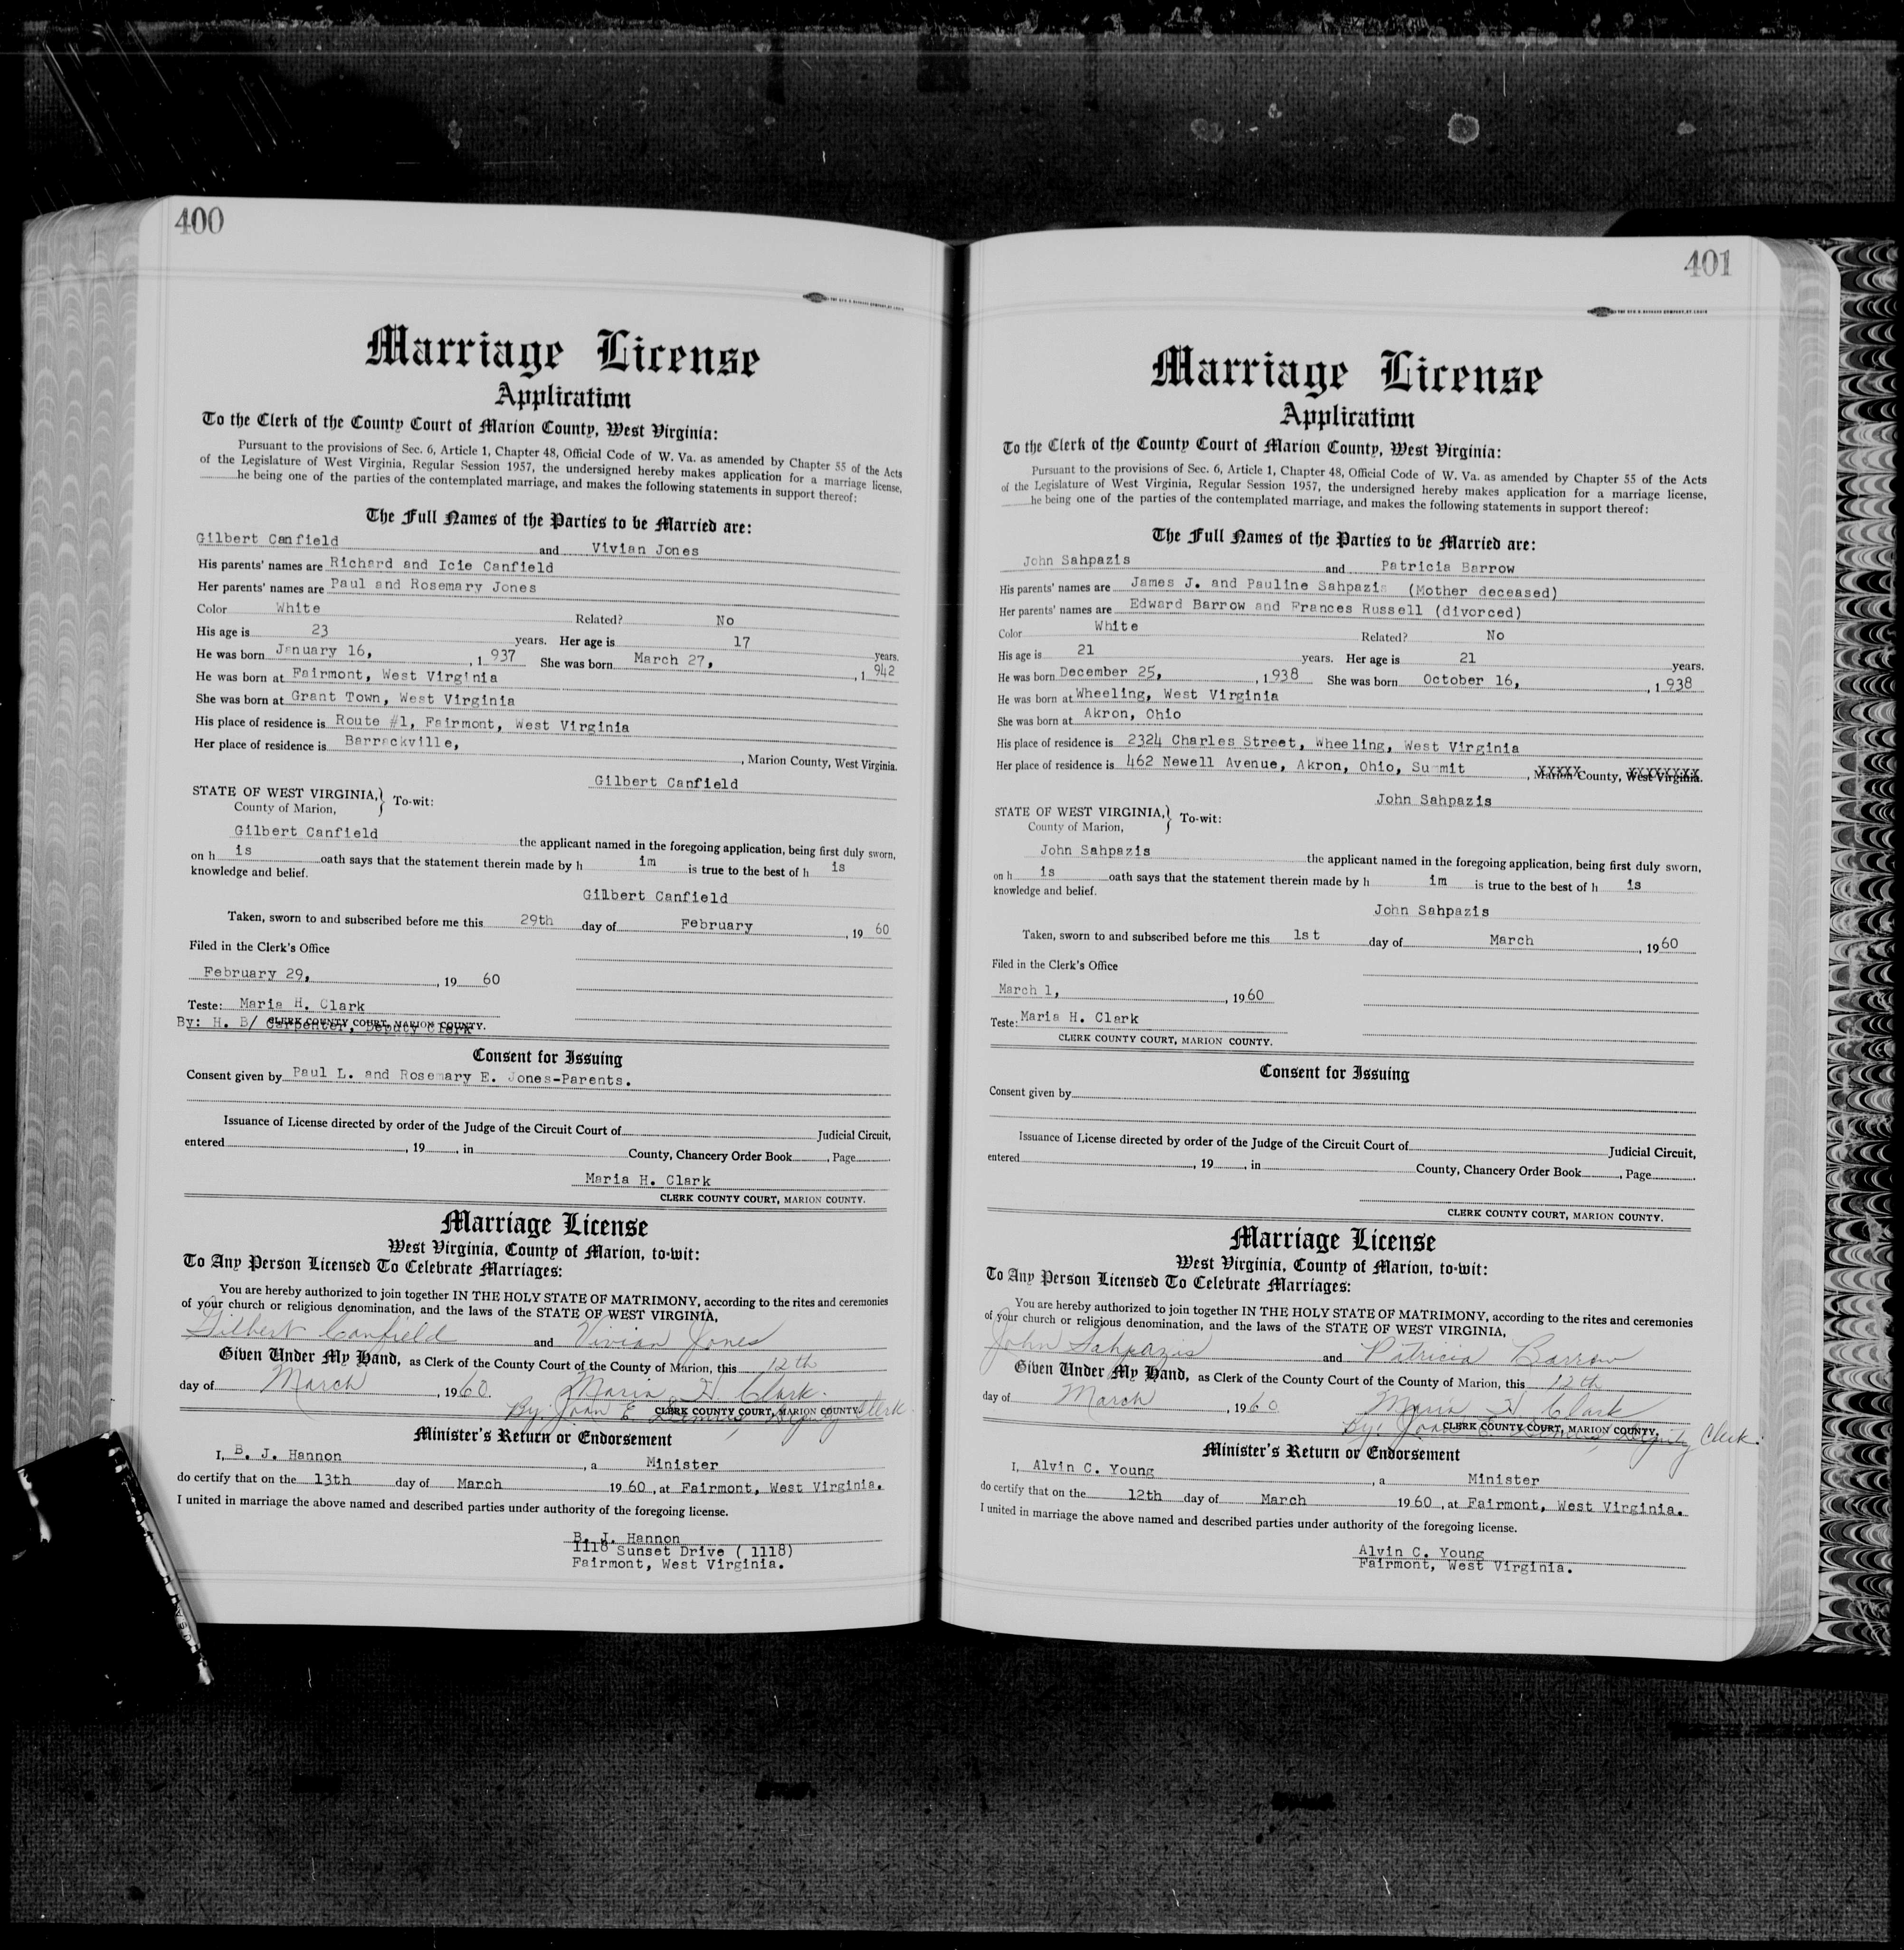 400
Marriage License
Application
To the Clerk of the County Court of Marion County, West Virginia:
Pursuant to the provisions of Sec. 6, Article 1, Chapter 48, Official Code of W. Va. as amended by Chapter 55 of the Acts
of the Legislature of West Virginia, Regular Session 1957, the undersigned hereby makes application for a marriage license,
he being one of the parties of the contemplated marriage, and makes the following statements in support thereof:
The Full Names of the Parties to be Married are:
Gilbert Canfield and Vivian Jones
His parents' names are Richard and Icie Canfield
Her parents' names are Paul and Rosemary Jones
Color White Related? No
His age is 23 years. Her age is 17 years.
He was born January 16, , 1 937 She was born March 27, , 1 942
He was born at Fairmont, West Virginia
She was born at Grant Town, West Virginia
His place of residence is Route #1, Fairmont, West Virginia
Her place of residence is Barrackville, , Marion County, West Virginia.
Gilbert Canfield
STATE OF WEST VIRGINIA,
County of Marion, } To-wit:
Gilbert Canfield the applicant named in the foregoing application, being first duly sworn,
on h is oath says that the statement therein made by h im is true to the best of h is
knowledge and belief.
Gilbert Canfield
Taken, sworn to and subscribed before me this 29th day of February , 19 60
Filed in the Clerk's Office
February 29, , 19 60
Teste: Maria H. Clark
CLERK COUNTY COURT, MARION COUNTY.
By: H. B/ Carpenter, Deputy Clerk
Consent for Issuing
Consent given by Paul L. and Rosemary E. Jones-Parents.
Issuance of License directed by order of the Judge of the Circuit Court of Judicial Circuit,
entered , 19 , in County, Chancery Order Book , Page
Maria H. Clark
CLERK COUNTY COURT, MARION COUNTY.
Marriage License
West Virginia, County of Marion, to-wit:
To Any Person Licensed To Celebrate Marriages:
You are hereby authorized to join together IN THE HOLY STATE OF MATRIMONY, according to the rites and ceremonies
of your church or religious denomination, and the laws of the STATE OF WEST VIRGINIA,
Gilbert Canfield and Vivian Jones
Given Under My Hand, as Clerk of the County Court of the County of Marion, this 12th
day of March , 19 60. Maria H. Clark.
CLERK COUNTY COURT, MARION COUNTY.
By: Joan E. Deputy Clerk
Minister's Return or Endorsement
I, B. J. Hannon , a Minister
do certify that on the 13th day of March 19 60 , at Fairmont, West Virginia.
I united in marriage the above named and described parties under authority of the foregoing license.
B. J. Hannon
1118 Sunset Drive ( 1118)
Fairmont, West Virginia.
401
Marriage License
Application
To the Clerk of the County Court of Marion County, West Virginia:
Pursuant to the provisions of Sec. 6, Article 1, Chapter 48, Official Code of W. Va. as amended by Chapter 55 of the Acts
of the Legislature of West Virginia, Regular Session 1957, the undersigned hereby makes application for a marriage license,
he being one of the parties of the contemplated marriage, and makes the following statements in support thereof:
The Full Names of the Parties to be Married are:
John Sahpazis and Patricia Barrow
His parents' names are James J. and Pauline Sahpazis (Mother deceased)
Her parents' names are Edward Barrow and Frances Russell (divorced)
Color White Related? No
His age is 21 years. Her age is 21 years.
He was born December 25, , 1 938 She was born October 16, , 1 938
He was born at Wheeling, West Virginia
She was born at Akron, Ohio
His place of residence is 2324 Charles Street, Wheeling, West Virginia
Her place of residence is 462 Newell Avenue, Akron, Ohio, Summit , Marion County, West Virginia.
John Sahpazis
STATE OF WEST VIRGINIA,
County of Marion, } To-wit:
John Sahpazis the applicant named in the foregoing application, being first duly sworn,
on h is oath says that the statement therein made by h im is true to the best of h is
knowledge and belief.
John Sahpazis
Taken, sworn to and subscribed before me this 1st day of March , 19 60
Filed in the Clerk's Office
March 1, , 19 60
Teste: Maria H. Clark
CLERK COUNTY COURT, MARION COUNTY.
Consent for Issuing
Consent given by
Issuance of License directed by order of the Judge of the Circuit Court of Judicial Circuit,
entered , 19 , in County, Chancery Order Book , Page
CLERK COUNTY COURT, MARION COUNTY.
Marriage License
West Virginia, County of Marion, to-wit:
To Any Person Licensed To Celebrate Marriages:
You are hereby authorized to join together IN THE HOLY STATE OF MATRIMONY, according to the rites and ceremonies
of your church or religious denomination, and the laws of the STATE OF WEST VIRGINIA,
John Sahpazis and Patricia Barrow
Given Under My Hand, as Clerk of the County Court of the County of Marion, this 12th
day of March , 19 60 Maria H. Clark
CLERK COUNTY COURT, MARION COUNTY.
By: Joan Deputy Clerk.
Minister's Return or Endorsement
I, Alvin C. Young , a Minister
do certify that on the 12th day of March 19 60 , at Fairmont, West Virginia.
I united in marriage the above named and described parties under authority of the foregoing license.
Alvin C. Young
Fairmont, West Virginia.